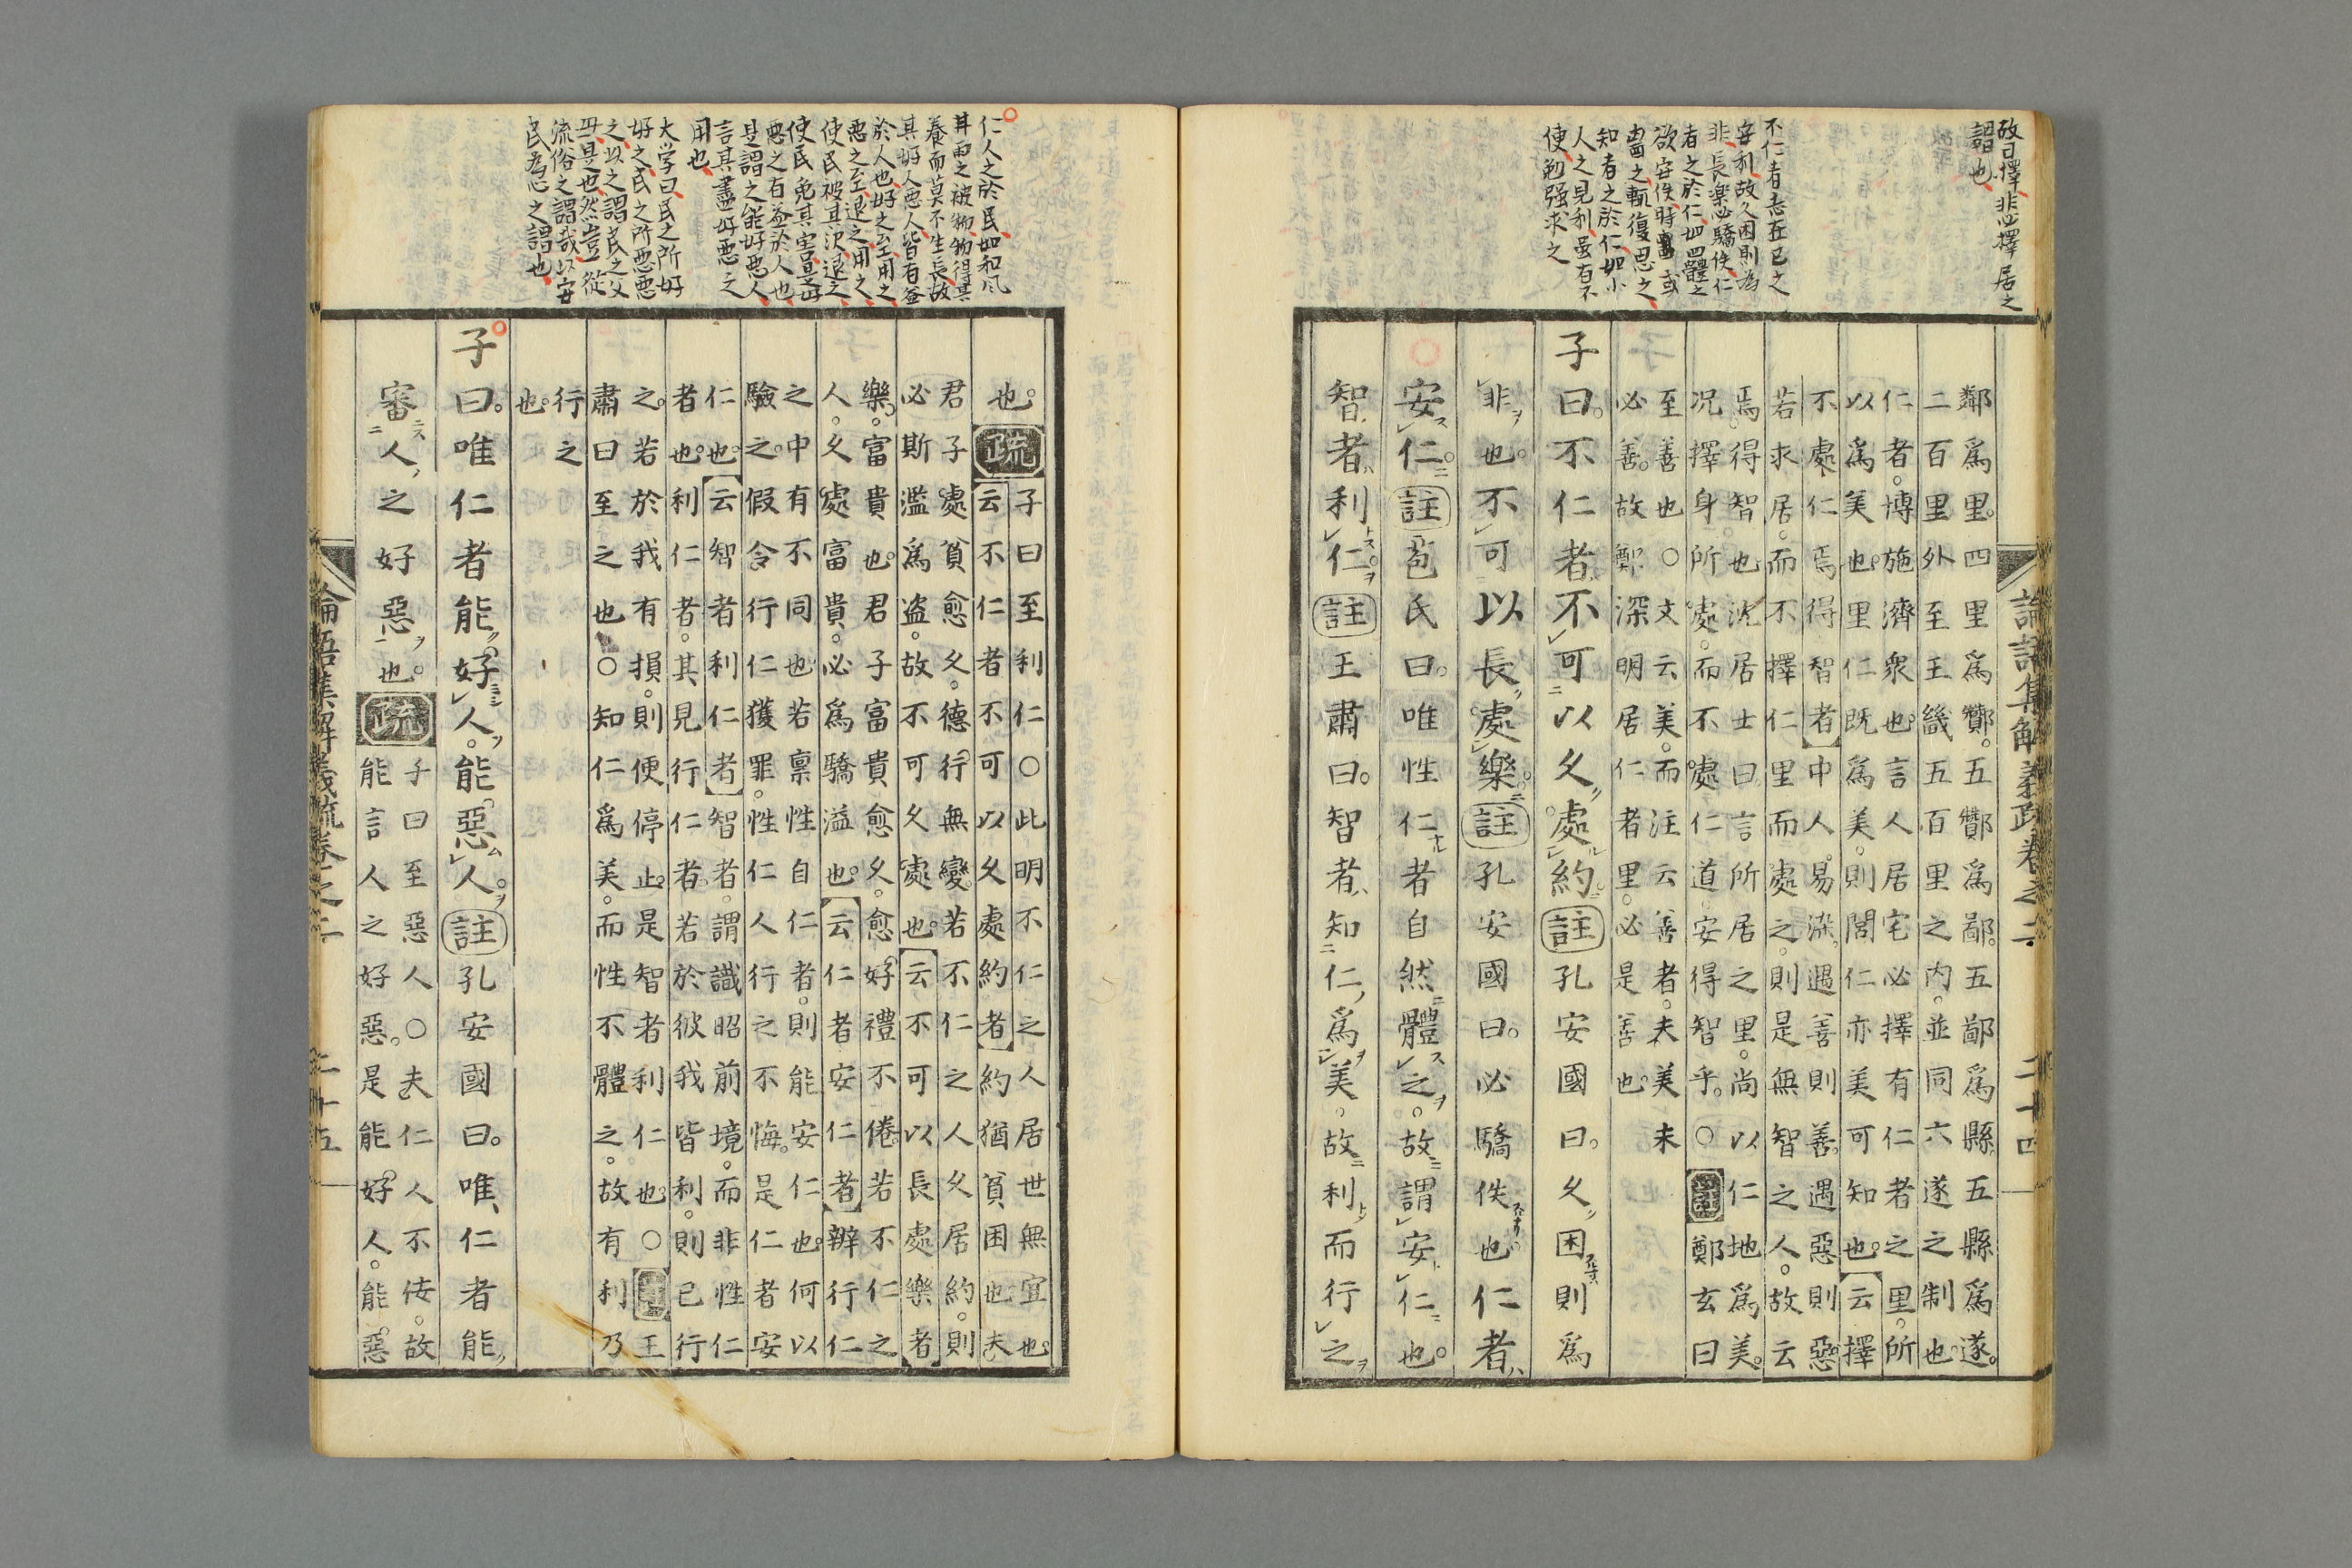 故曰擇非必擇居之
謂也
不仁者志在己之
安利故久困則為
非長樂必驕佚仁
者之於仁如四體之
欲安佚時或
之輒復思之
知者之於仁如小
人之見利虽有不
便勉强求之
論語集解義疏卷之二
二十四
鄰爲里四里爲酇五酇爲鄙五鄙爲縣五縣爲遂
二百里外至王畿五百里之内並同六遂之制也
仁者博施濟衆也言人居宅必擇有仁者之里所
以爲美也里仁既爲美則閭仁亦美可知也云擇
不處仁焉得智者中人易染遇善則善遇惡則惡
若求居而不擇仁里而處之則是無智之人故云
焉得智也沈居士曰言所居之里尚以仁地爲美
况擇身所處而不處仁道安得智乎○註鄭玄曰
至善也○文云美而注云善者夫美未
必善故鄭深明居仁者里必是善也
子曰不仁者不可以久處約註孔安國曰久困則爲
非也不可以長處樂註孔安國曰必驕佚也仁者
安仁註苞氏曰唯性仁者自然體之故謂安仁也
智者利仁註王肅曰智者知仁爲美故利而行之
仁人之於民如和風
甘雨之被物物得其
養而莫不生長故
其好人惡人皆有益
於人也好之至用之
惡之至退之用之
使民被其沢退之
使民免其害是好
惡之有益於人也
是謂之能好惡人
言其盡好惡之
用也
大学曰民之所好
好之民之所惡惡
之此之謂民之父
母是也然豈從
流俗之謂哉以安
民為心之謂也
也疏子曰至利仁○此明不仁之人居世無宜也
云不仁者不可以久處約者約猶貧困也夫
君子處貧愈久德行無變若不仁之人久居約則
必斯濫爲盗故不可久處也云不可以長處樂者
樂富貴也君子富貴愈久愈好禮不倦若不仁之
人久處富貴必爲驕溢也云仁者安仁者辨行仁
之中有不同也若禀性自仁者則能安仁也何以
驗之假令行仁獲罪性仁人行之不悔是仁者安
仁也云智者利仁者智者謂識昭前境而非性仁
者也利仁者其見行仁者若於彼我皆利則已行
之若於我有損則便停止是智者利仁也○註王
肅曰至之也○知仁爲美而性不體之故有利乃
行之
也
子曰唯仁者能好人能惡人註孔安國曰唯仁者能
審人之好惡也疏子曰至惡人○夫仁人不佞故
能言人之好惡是能好人能惡
論語集解義疏卷之二
二十五